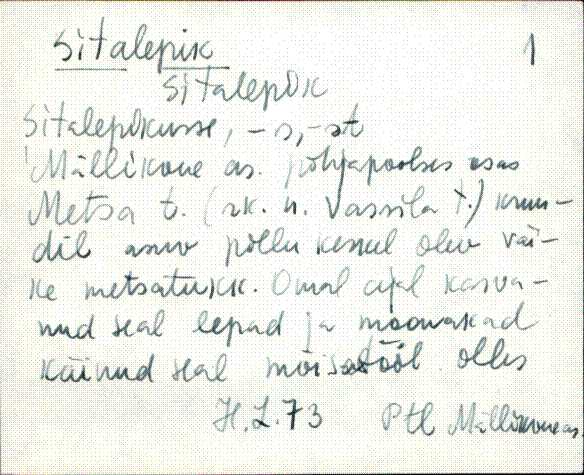 Sitalepik 1
Sitalepik
Sitalepikusse, -s, -st
Mällikvere as. põhjapoolses osas
Metsa t. (rk. n. Vassila t.) krun-
dil asuv põllu keskel olev väi-
ke metsatukk. Omal ajal kasva-
nud seal lepad ja moonakad
käinud seal mõisatööl olles
H.L.73 Ptl Mällikvere as.